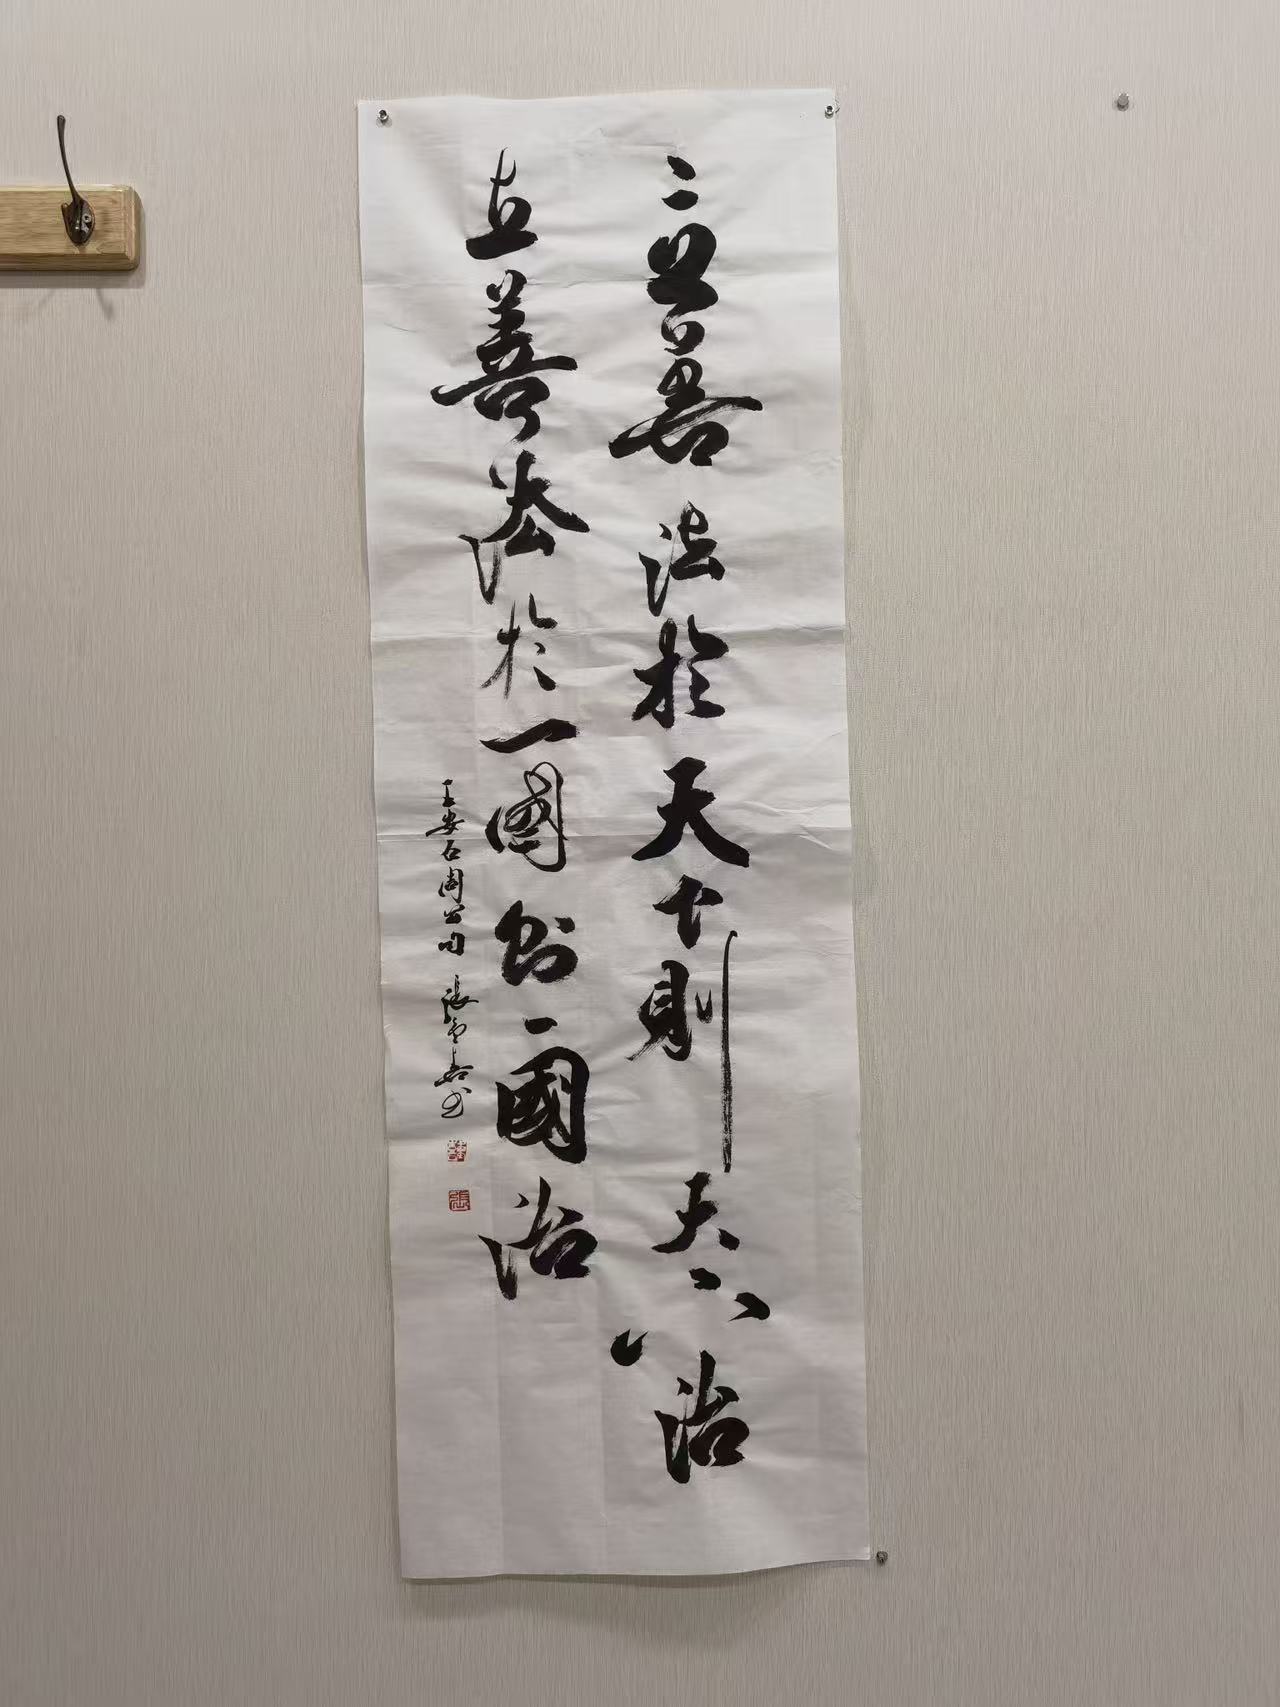 立善法於天下則天下治
立善法於一國則一國治
王安石周公 張書
張